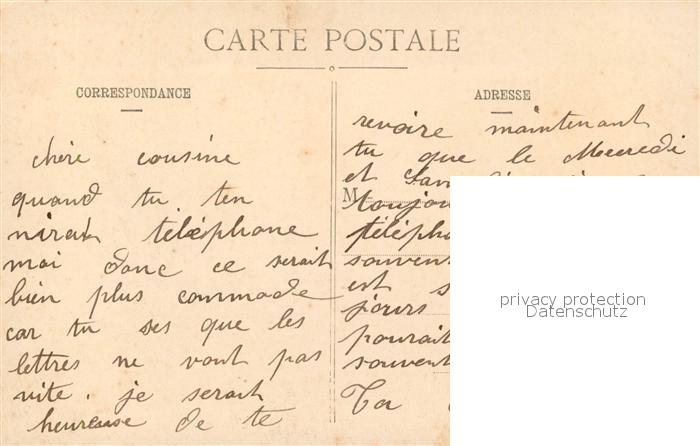 CARTE POSTALE
CORRESPONDANCE
chère cousine
quand tu ten
nirat téléphone
moi donc ce serait
bien plus commode
car tu ses que les
lettres ne vont pas
vite. je serait
heureuse de te
ADRESSE
revoire maintenant
tu que le Mecredi
et
M
toujou
téléph
souvent
est s
jours
pourait
souvent
Ta
privacy protection
Datenschutz